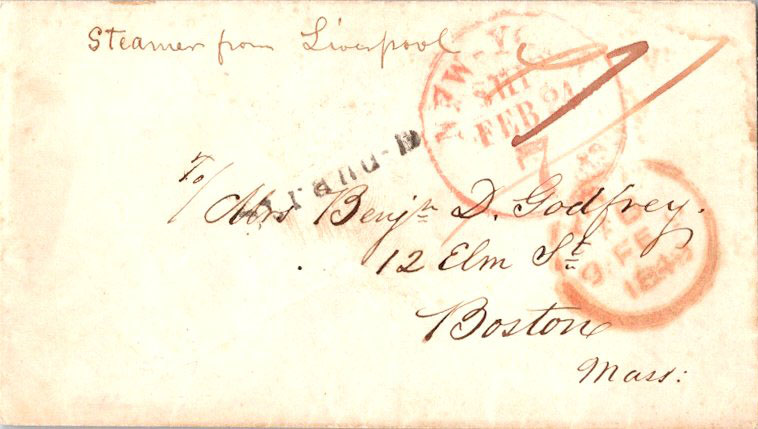 Steamer from Liverpool
NEW-YORK
SHIP
FEB
7
To/ Mrs Benjn D. Godfrey.
12 Elm St
Boston
Mass:
9 FE